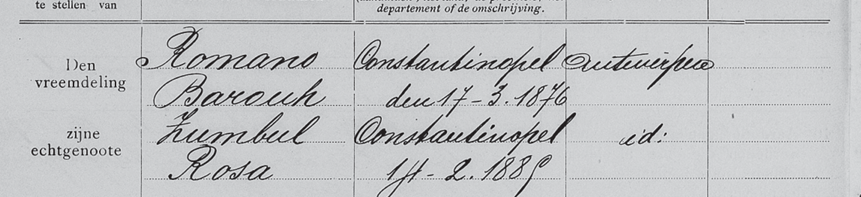 te stellen van
departement of de omschrijving.
Den vreemdeling Romano Constantinopel Antwerpen
Barouh den 17-3.1876
zijne echtgenoote Zumbul Constantinopel id:
Rosa 2.188